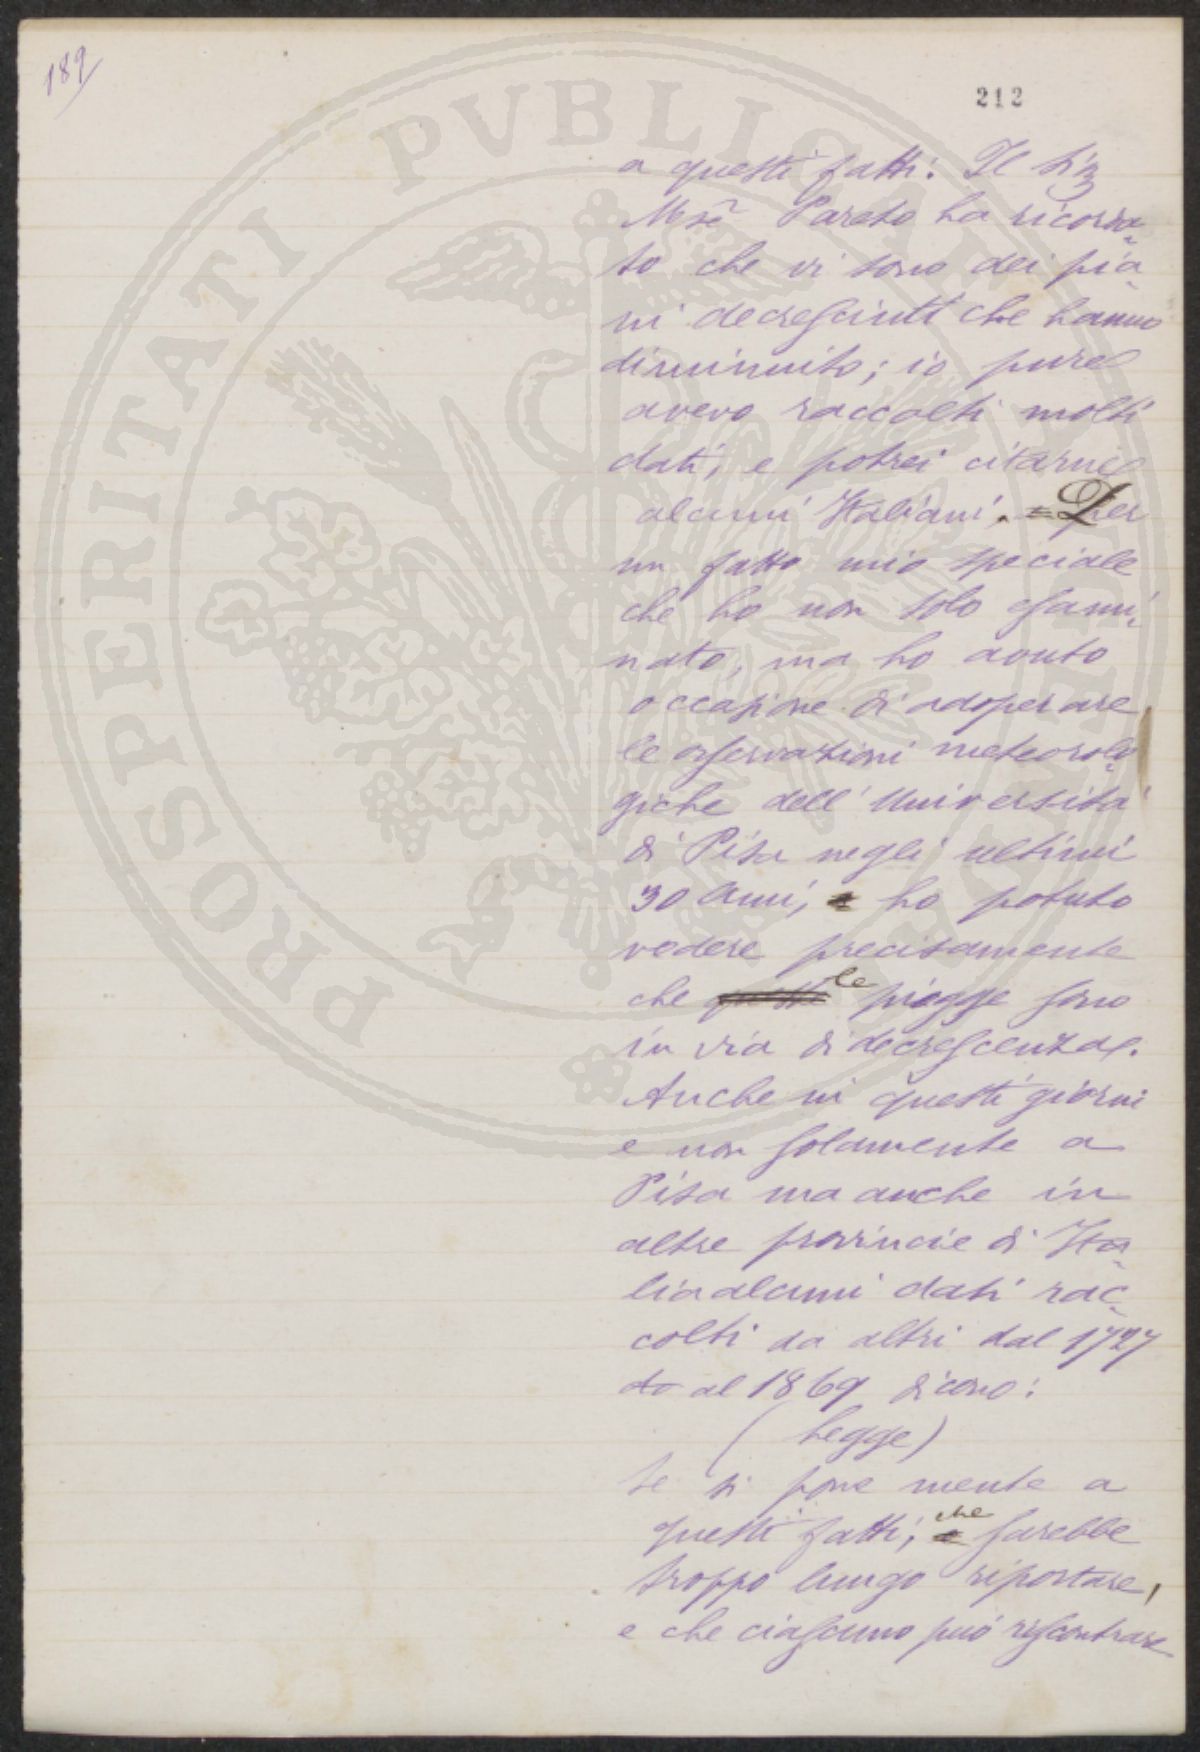 189
212
a questi fatti: Il Sig
Mse Pareto ha ricorda-
to che vi sono dei pia-
ni decresciuti che hanno
diminuito; io pure
avevo raccolti molti
dati, e potrei citarne
alcuni Italiani. = Per
un fatto mio speciale
che ho non solo esami-
nato, ma ho avuto
occasione di adoperare
le osservazioni meteorolo-
giche dell'Università
di Pisa negli ultimi
30 Anni, e ho potuto
vedere precisamente
che le piogge sono
in via di decrescenza.
Anche in questi giorni
e non solamente a
Pisa ma anche in
altre provincie di Ita-
lia alcuni dati rac-
colti da altri dal 1727
do al 1869 dicono:
(Legge)
Se si pone mente a
questi fatti, che sarebbe
troppo lungo riportare,
e che ciascuno può riscontrare
PROSPERITATI PVBLICAE